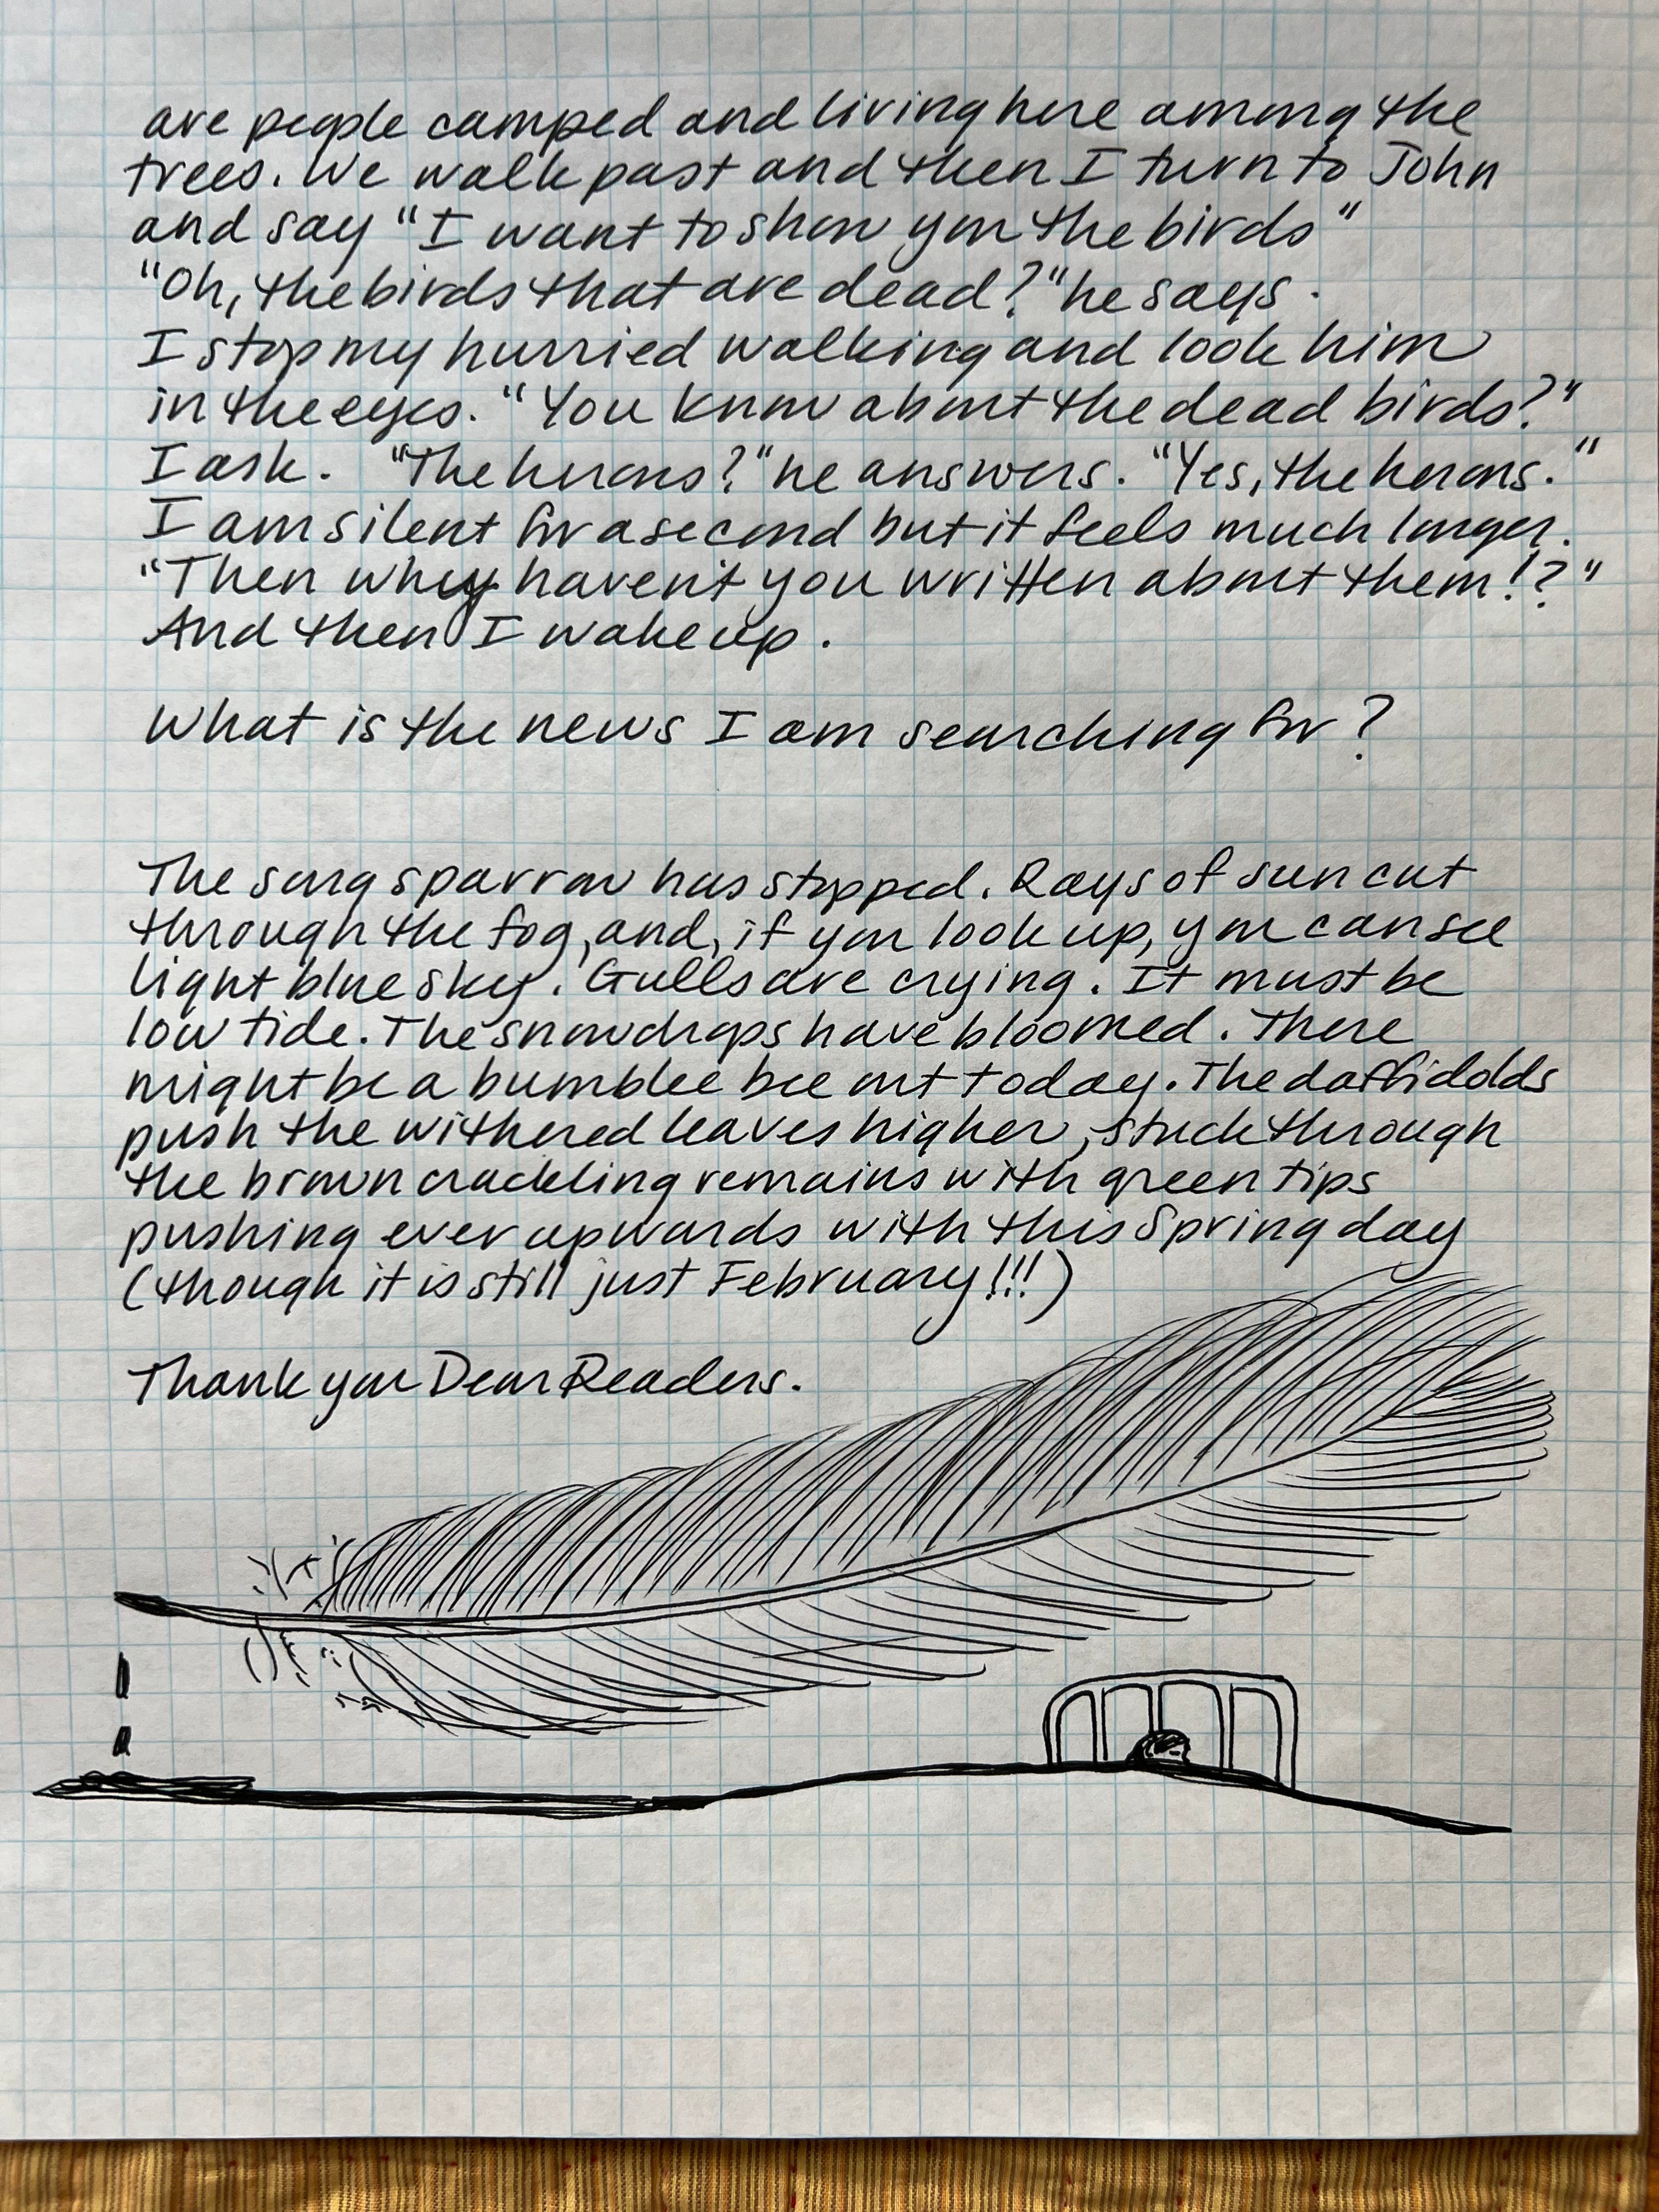 are people camped and living here among the
trees. We walk past and then I turn to John
and say "I want to show you the birds"
"Oh, the birds that are dead?" he says.
I stop my hurried walking and look him
in the eyes. "You know about the dead birds?"
I ask. "The herons?" he answers. "Yes, the herons."
I am silent for a second but it feels much longer.
"Then why haven't you written about them!?"
And then I wake up.
What is the news I am searching for?
The song sparrow has stopped. Rays of sun cut
through the fog, and, if you look up, you can see
light blue sky. Gulls are crying. It must be
low tide. The snowdrops have bloomed. There
might be a bumblee bee out today. The daffidolds
push the withered leaves higher, stuck through
the brown crackling remains with green tips
pushing ever upwards with this Spring day
(though it is still just February!!!)
Thank you Dear Readers.